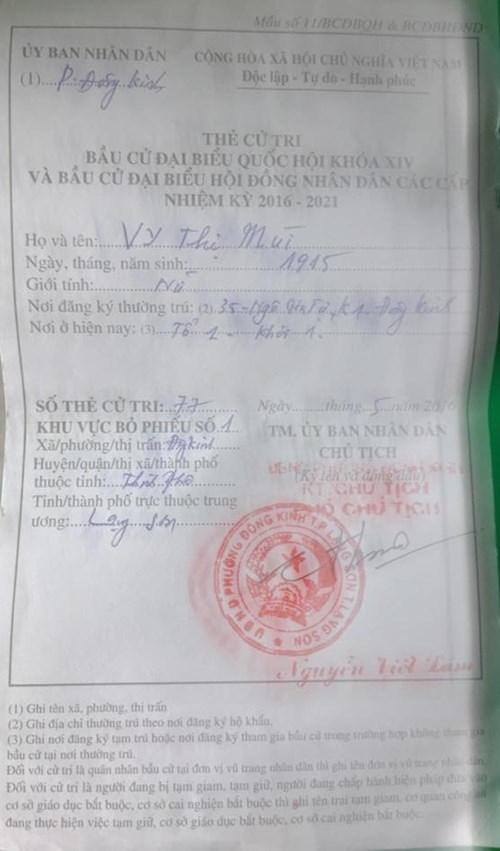 Mẫu số 11/BCĐBQH & BCĐBHĐND
ỦY BAN NHÂN DÂN
(1) P. Đông Kinh
CỘNG HÒA XÃ HỘI CHỦ NGHĨA VIỆT NAM
Độc lập - Tự do - Hạnh phúc
THẺ CỬ TRI
BẦU CỬ ĐẠI BIỂU QUỐC HỘI KHÓA XIV
VÀ BẦU CỬ ĐẠI BIỂU HỘI ĐỒNG NHÂN DÂN CÁC CẤP
NHIỆM KỲ 2016 - 2021
Họ và tên: Vy Thị Mùi
Ngày, tháng, năm sinh: 1915
Giới tính: Nữ
Nơi đăng ký thường trú: (2) 35 - Ngô Gia Tự, K1. Đông Kinh
Nơi ở hiện nay: (3) Tổ 1 - Khối 1.
SỐ THẺ CỬ TRI: 77
KHU VỰC BỎ PHIẾU SỐ 1
Xã/phường/thị trấn: Đg kinh
Huyện/quận/thị xã/thành phố
thuộc tỉnh: Thành phố
Tỉnh/thành phố trực thuộc trung
ương: Lạng Sơn
Ngày......tháng 5 năm 2016
TM. ỦY BAN NHÂN DÂN
CHỦ TỊCH
(Ký tên và đóng dấu)
KT. CHỦ TỊCH
PHÓ CHỦ TỊCH
U.B.N.D PHƯỜNG ĐÔNG KINH T.P LẠNG SƠN T.LẠNG SƠN
Nguyễn Viết
(1) Ghi tên xã, phường, thị trấn
(2) Ghi địa chỉ thường trú theo nơi đăng ký hộ khẩu.
(3) Ghi nơi đăng ký tạm trú hoặc nơi đăng ký tham gia bầu cử trong trường hợp không tham gia
bầu cử tại nơi thường trú.
Đối với cử tri là quân nhân bầu cử tại đơn vị vũ trang nhân dân thì ghi tên đơn vị vũ trang nhân dân.
Đối với cử tri là người đang bị tạm giam, tạm giữ, người đang chấp hành biện pháp đưa vào
cơ sở giáo dục bắt buộc, cơ sở cai nghiện bắt buộc thì ghi tên trại tạm giam, cơ quan công an
đang thực hiện việc tạm giữ, cơ sở giáo dục bắt buộc, cơ sở cai nghiện bắt buộc.